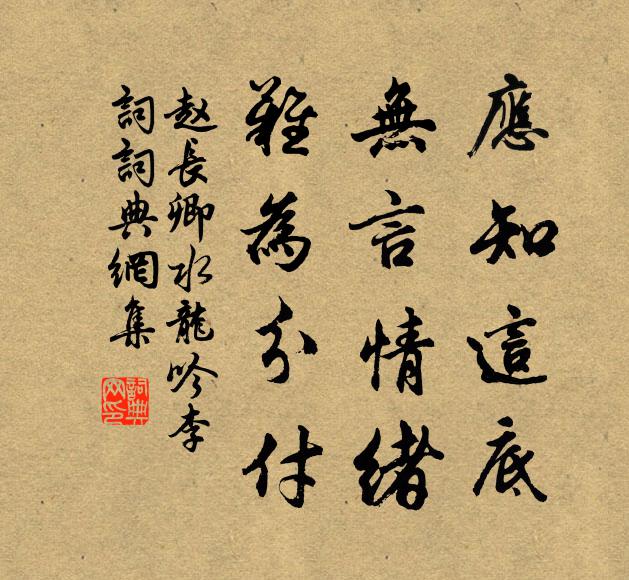 應知這底
無言情緒
難為分付
赵長卿水龍吟李
詞詞典網集
詞典網印